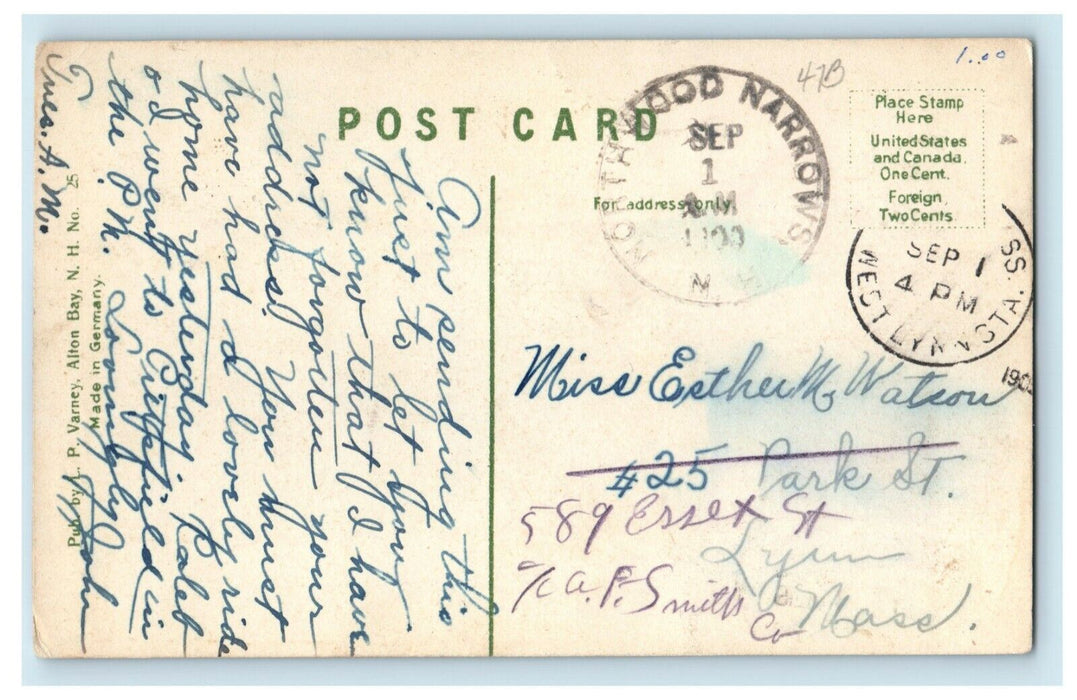 1.00
47B
POST CARD
For address only.
Place Stamp
Here
United States
and Canada.
One Cent.
Foreign
Two Cents.
NORTHWOOD NARROWS.
SEP
1
AM
N. H.
WEST LYNN STA.
SS.
SEP 1
4 PM
Miss Esther M. Watson
#25 Park St.
589 Essex St
Lynn
c/o A. P. Smith
Co
Mass.
Am sending this
just to let you
know that I have
not forgotten your
address. You must
have had a lovely ride
home yesterday. Ralef
& I went to Pittsfield in
the P.M. Lovingly John
Tues. A. M.
Pub. by L. P. Varney, Alton Bay, N. H. No. 25
Made in Germany.